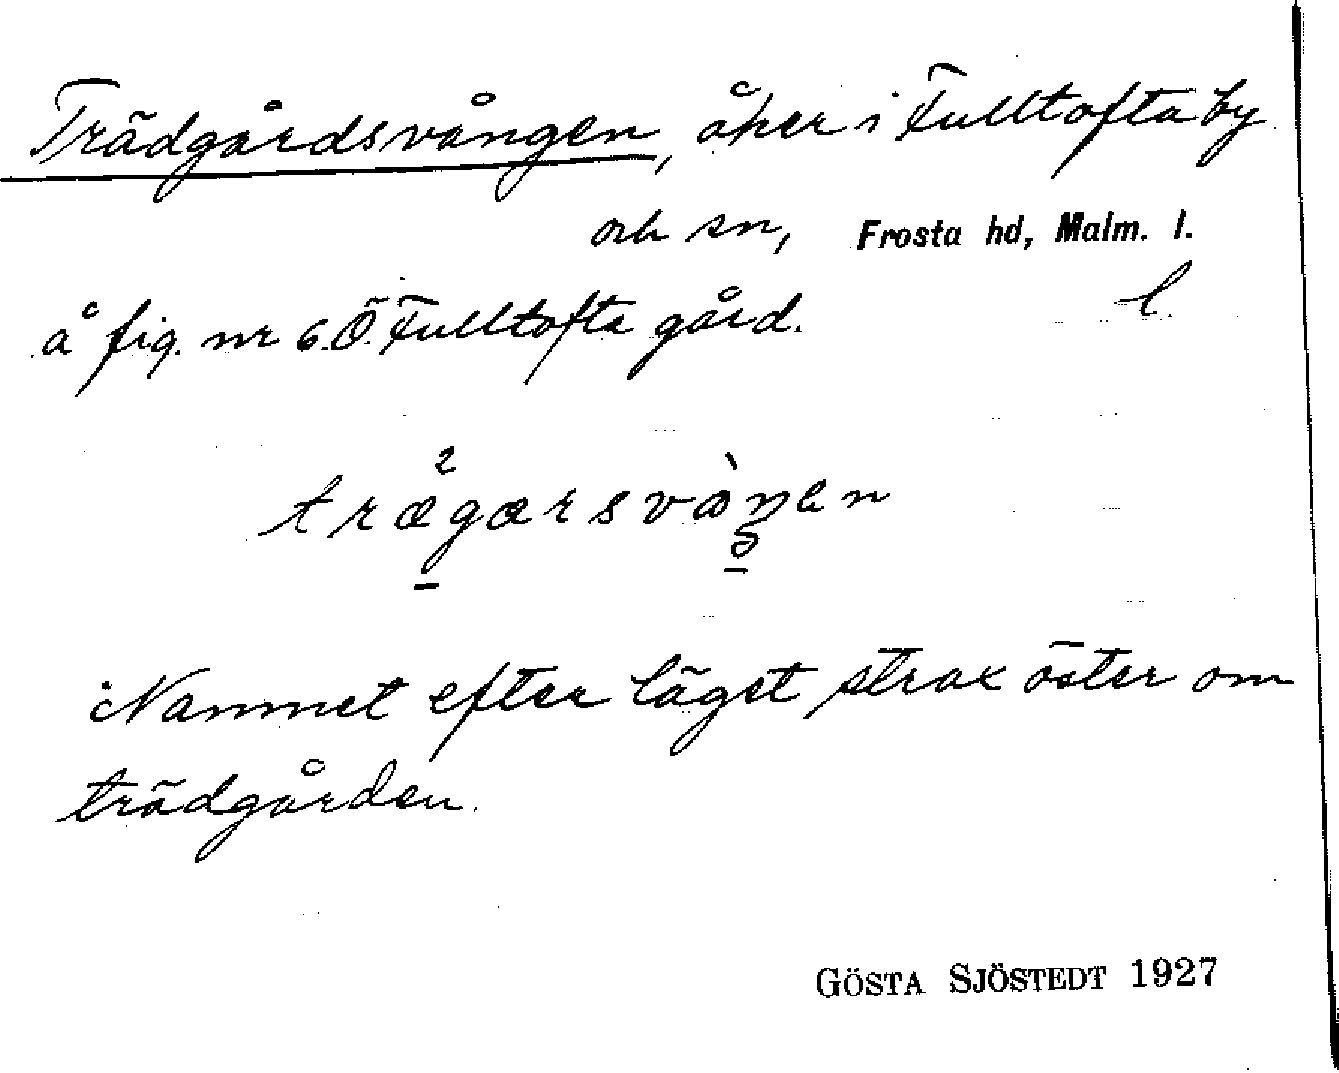 Trädgårdsvången, åker i Fulltofta by
och sn, Frosta hd, Malm. l.
å fig. nr 6. Ö. Fulltofta gård. l.
Namnet efter läget strax öster om
trädgården.
GÖSTA SJÖSTEDT 1927